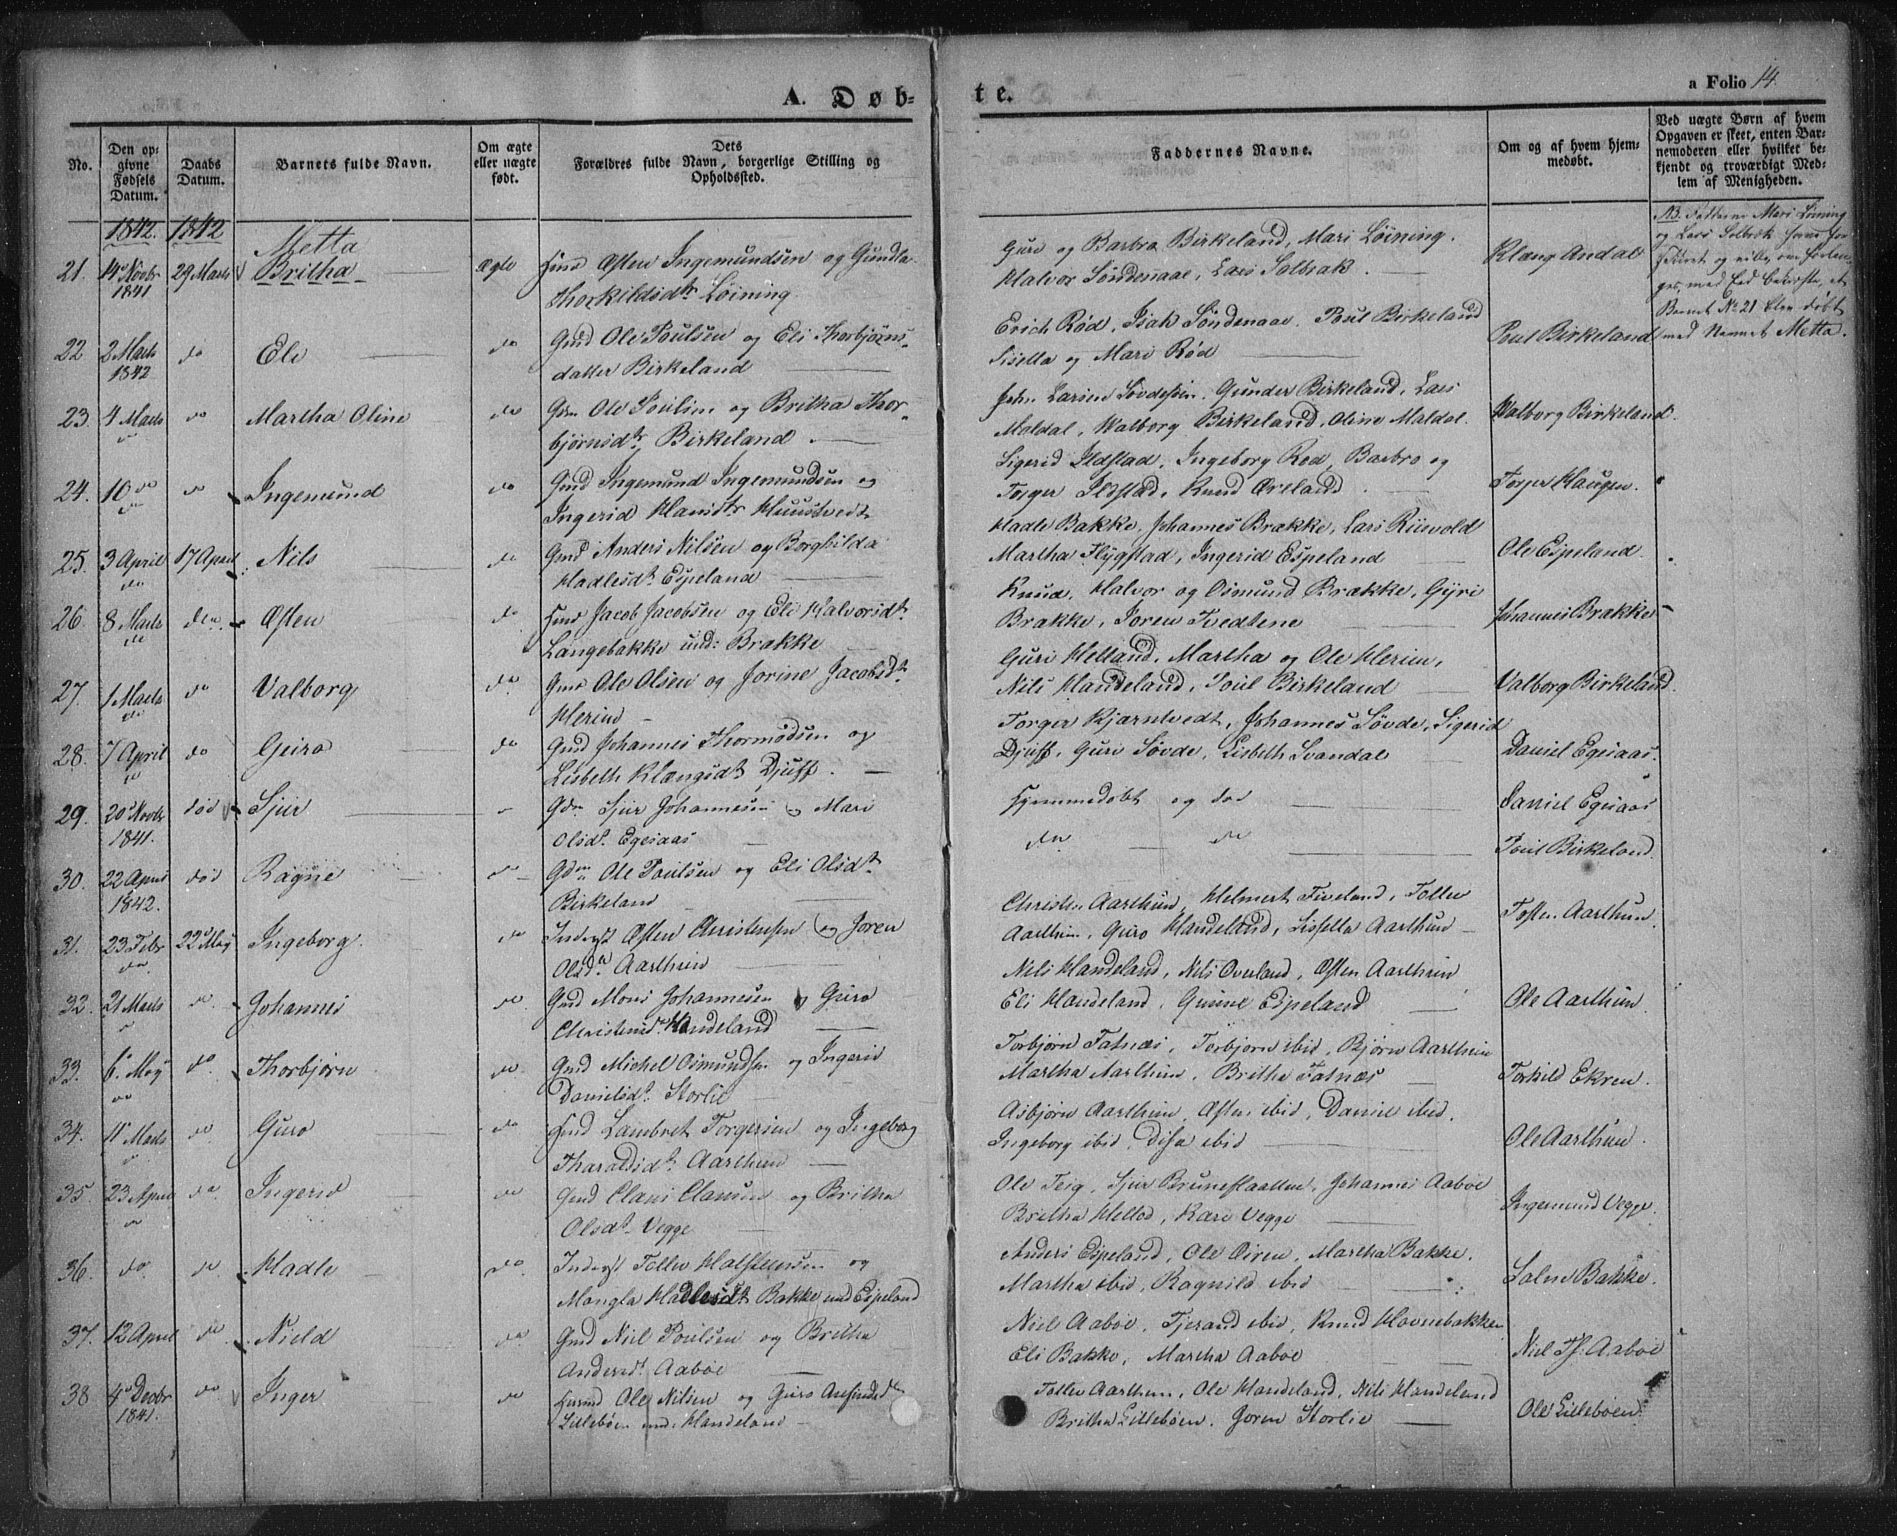 A. Døb-
te.
a Folio 14.
No.
Den opgivne Fødsels Datum.
Daabs Datum.
Barnets fulde Navn.
Om ægte eller uægte født.
Dets Forældres fulde Navn, borgerlige Stilling og Opholdssted.
Faddernes Navne.
Om og af hvem hjemmedøbt.
Ved uægte Børn af hvem Opgaven er skeet, enten Barnemoderen eller hvilket bekjendt og troværdigt Medlem af Menigheden.
1842. 1842
Metta
21. 14 Novbr 1841 29 Marts Britha Ægte Huusm Østen Ingemundsen og Gundla
Thorkildsdtr Löining
Guri og Barbra Birkeland, Mari Löining.
Halvor Söndenaae, Lars Solbrek
Klæng Andal
NB. Fadderne Mari Löining
og Lars Solbrek have
med Eed bekræfte, at
Barnet No 21 blev döbt
med Navnet Metta.
22 2 Marts 1842 do Eli do Gmd Ole Poulsen og Eli Thorbjörns-
datter Birkeland
Erich Röd, Isak Söndenaae, Poul Birkeland
Sisella og Mari Röd
Poul Birkeland
23. 4 Marts do do Martha Oline do Gdm Ole Poulsen og Britha Thor-
björnsdtr Birkeland
John Larsen Sövdesøen, Gunder Birkeland, Lars
Maldal, Walborg Birkeland, Oline Maldal.
Walborg Birkeland.
24. 10 do do do Ingemund do Gmd Ingemund Ingemundsen og
Ingerid Hansdtr Huustvedt
Sigerid Ilstad, Ingeborg Röd, Barbro og
Torger Ilstad, Knud Ørland
Torger Haugen.
25. 3 April do 17 April Nils do Gmd Anders Nilsen og Borghilda
Hadlesdt. Espeland
Hadle Bakke, Johannes Brække, Lars Riisvold
Martha Flygstad, Ingerid Espeland
Ole Espeland.
26. 8 Marts do do Østen do Huus Jacob Jacobsen og Eli Halvorsdtr
Langebakke und: Brække
Knud, Halvor og Osmund Brække, Gyri
Brække, Joren Tvedtene
Johannes Brække
27. 1 Marts do do Valborg do Gmd Ole Olsen og Jorine Jacobsdt.
Herim
Guri Helland, Martha og Ole Herim,
Nils Handeland, Poul Birkeland
Valborg Birkeland
28. 7 April do do Geiro do Gmd Johannes Thormodsen og
Lisbeth Klængsdt. Djuff.
Torger Kjærntvedt, Johannes Sövde, Sigerid
Djuff, Guri Sövde, Lisbeth Svandal
Daniel Egesaas.
29. 20 Novbr 1841. död Sjur Gdm Sjur Johannesen og Mari
Olsdt. Egesaas
Hjemmedöbt og död
Daniel Egesaas
30. 22 April 1842. död Ragne do Gdm Ole Poulsen og Eli Olsdt.
Birkeland
do do
Poul Birkeland.
31. 23 Febr do. 22 May Ingeborg do Inderst Østen Christensen og Joren
Olsd. Aarthun
Christen Aarthun, Helmert Fiveland, Tollev
Aarthun, Guro Handeland, Sissella Aarthun
Tosten Aarthun.
32. 21 Marts do Johannes do Gmd Mons Johannesen og Guro
Christensd. Handeland
Nils Handeland, Nils Overland, Østen Aarthun
Eli Handeland, Gunne Espeland
Ole Aarthun.
33. 6 May do do. Thorbjörn do Gmd Michel Osmundsen og Ingerid
Danielsdt. Storlie
Torbjörn Fatnes, Torbjörn ibid, Björn Aarthun
Martha Aarthun, Britha Fatnæs
Torkild Ekren.
34. 11 Marts do do Guro do Huusmd Lambret Torgersen og Ingeborg
Tharaldsdt. Aarthun
Asbjörn Aarthun, Østen ibid, Daniel ibid,
Ingeborg ibid, Disa ibid
Ole Aarthun.
35. 23 April do do. Ingerid do Gmd Claus Clausen og Britha
Olsdt. Vegge
Ole Teig, Sjur Bruneslaatten, Johannes Aaboe
Britha Hellad, Kari Vegge
Ingemund Vegge.
36. do do Hadle do Inderst Tollev Halsteensen og
Mangla Hadlesdt Bakke und Espeland
Anders Espeland, Ole Öiren, Martha Bakke.
Martha ibid, Ragnild ibid
Bakke.
37. 12 April do Nield do Gmd Niel Poulsen og Britha
Andersdt. Aaboe
Niel Aaboe, Tjerand ibid, Knud Hovnebakken
Eli Bakke, Martha Aaboe
Niel Th. Aaboe
38 4 Decbr 1841. do Inger do Huusmd Ole Nilsen og Guro Amundsd
Lilleböen und: Handeland
Tollev Aarthun, Ole Handeland, Nils Handeland
Britha Lilleböen, Joren Storlie
Ole Lilleböen.